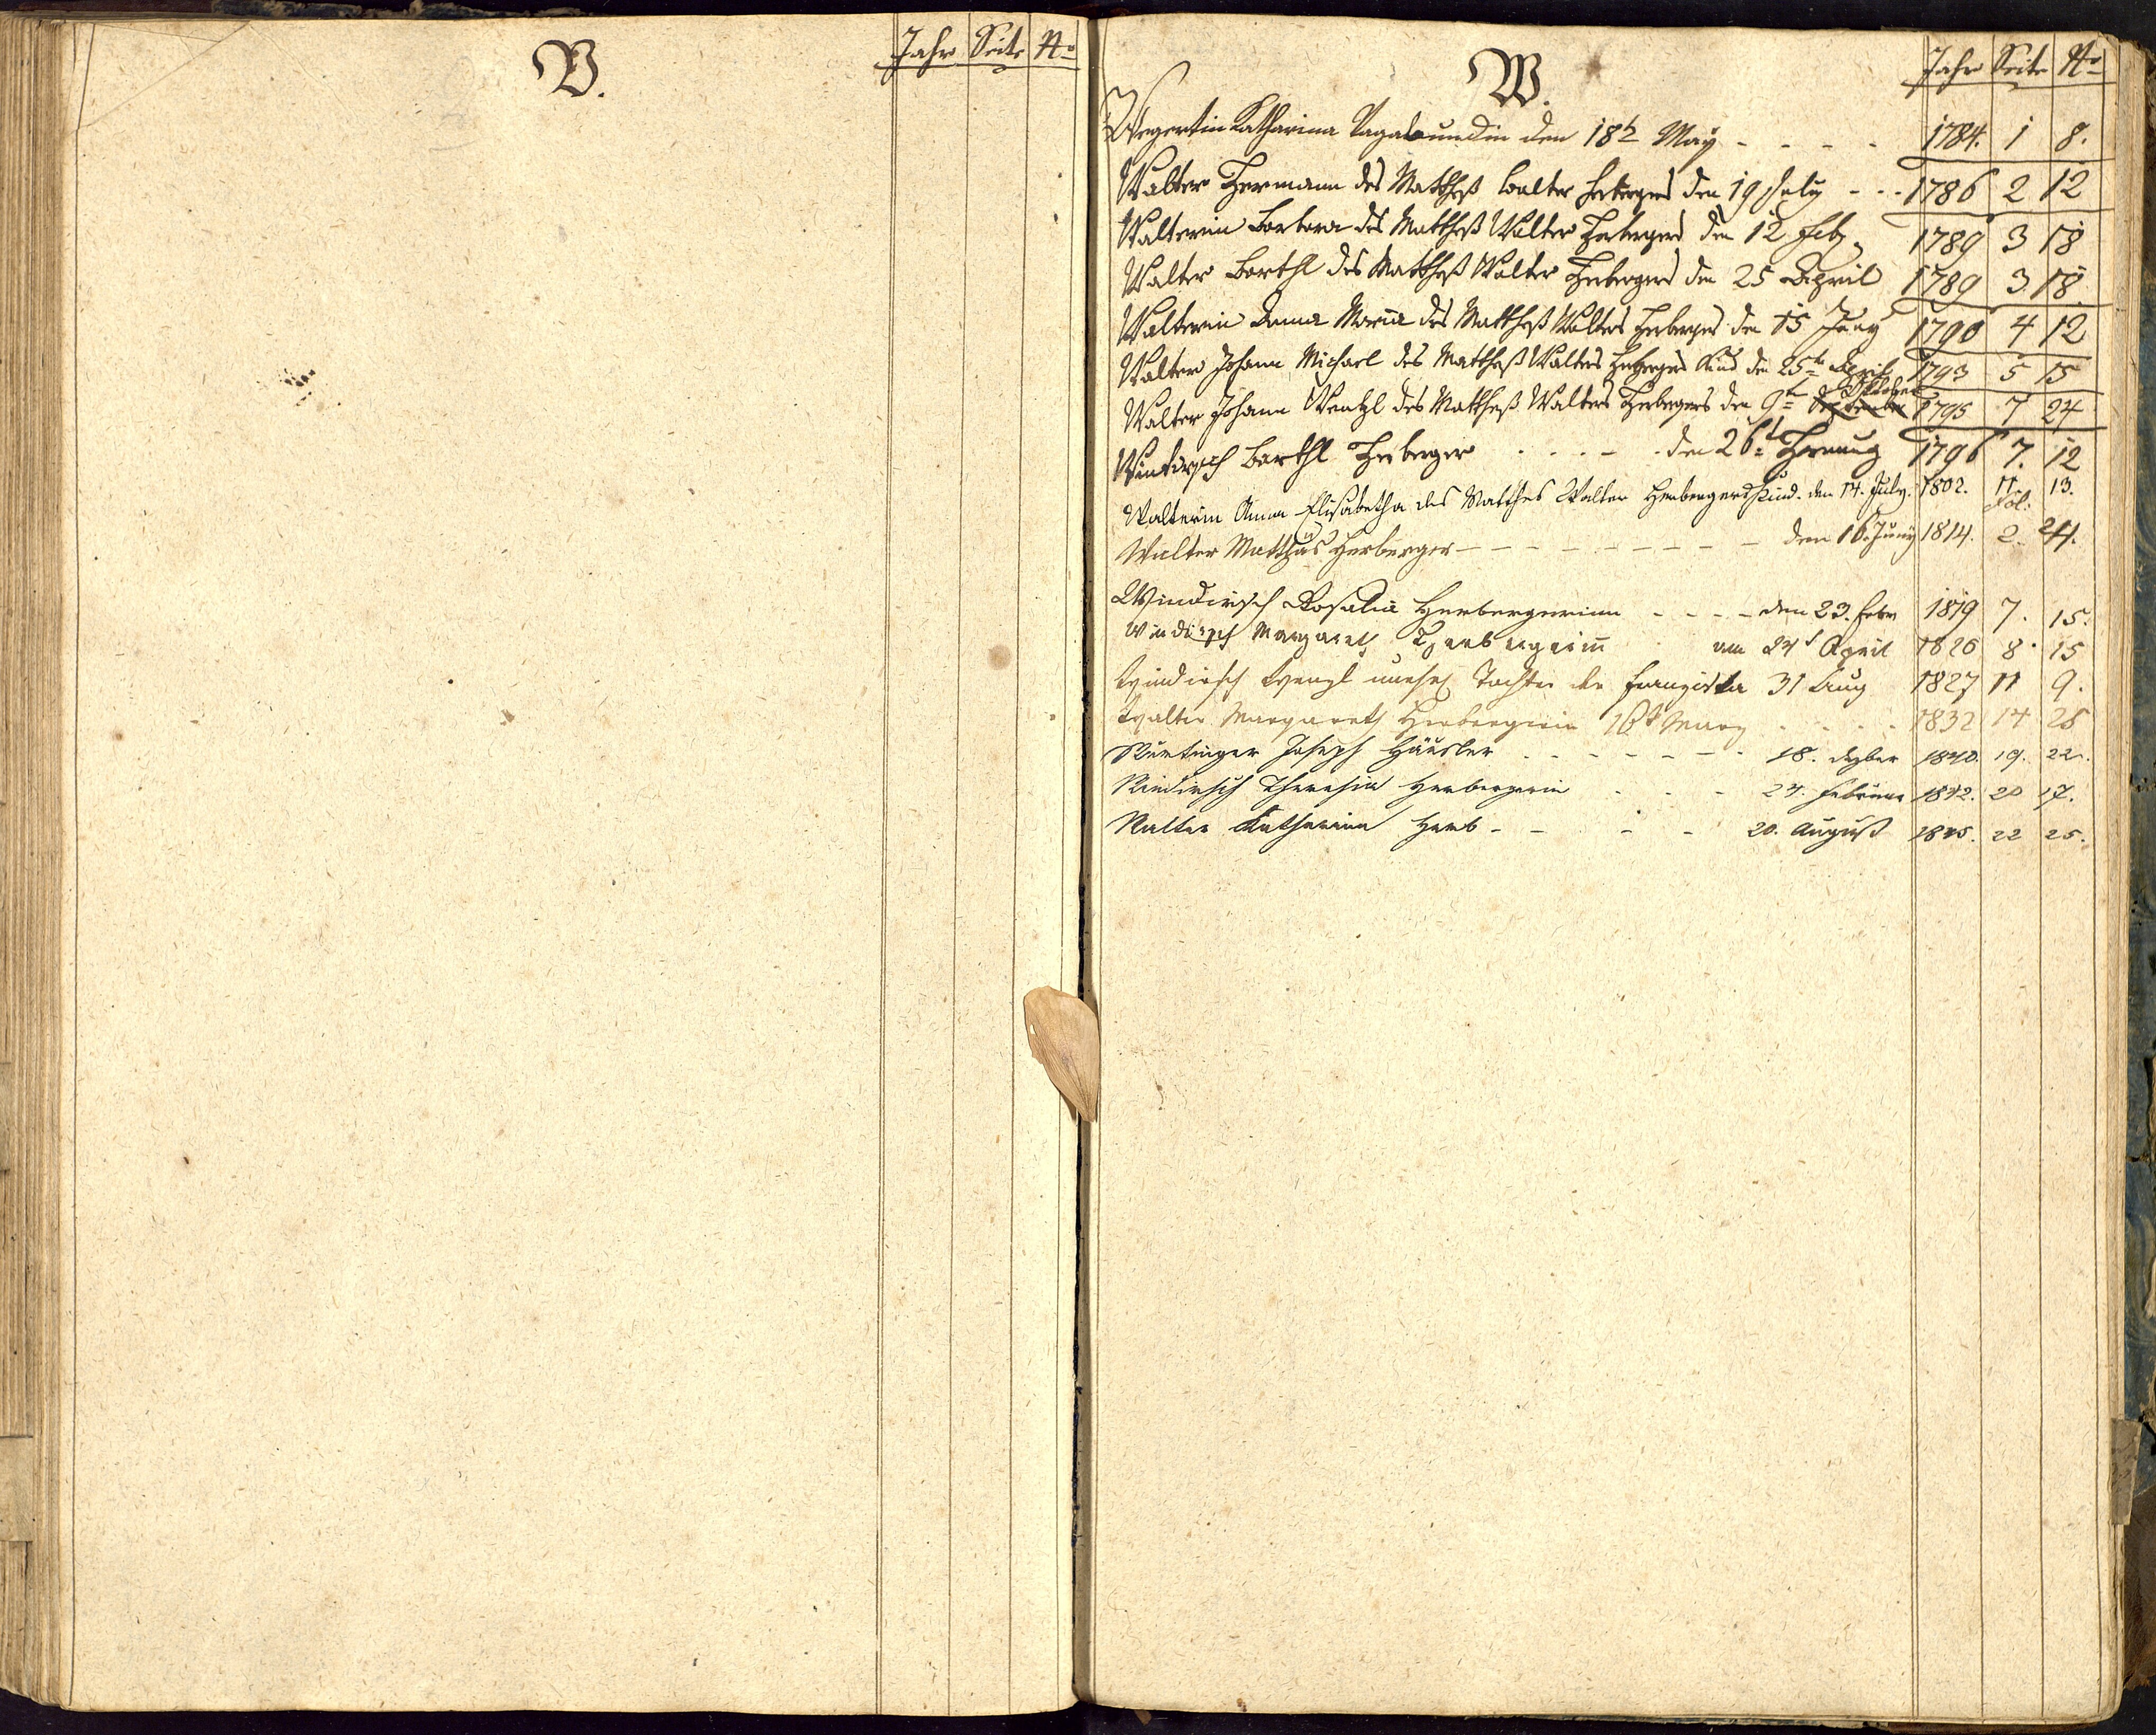 V.
Jahr Seite No
W.
Jahr Seite No
Wegertin Katharina Vagabundin den 18t May - - - - 1784. 1 8.
Walter Hermann des Mattheß Walter Herbergers den 19 July - - - 1786 2 12
Walterin Barbara des Mattheß Walter Herbergers den 12 Feb. 1789 3 18
Walter Barthl des Mattheß Walter Herbergers den 25 April 1789 3 18
Walterin Anna Maria des Mattheß Walters Herbergers den 15 Juny 1790 4 12
Walter Johann Michael des Mattheß Walters Herbergers Kind den 25t April 1793 5 15
Oktober
Walter Johann Wentzl des Mattheß Walters Herbergers den 9t September 1795 7 24
Windirsch Barthl Herberger - - - - den 26t Hornung 1796 7. 12
Walterin Anna Elisabetha des Matthes Walter Herbergers Kind. den 14. July. 1802. 11 13.
Fol.
Walter Matthäus Herberger - - - - - - - - - den 16. Juny 1814. 2. 24.
Windirsch Rosalia Herbergerinn - - - - den 23. Febr 1819 7. 15.
Windirsch Margareth Herbergerinn am 24t April 1826 8. 15
Windirsch Wenzl unehel Tochter der Franziska 31 Aug 1827 11 9.
Walter Margareth Herbergerin 16t März - - - - 1832 14 25
Joseph Häusler - - - - - - - 18. Dezber 1840. 19. 22.
Windirsch Theresia Herbergerin - - - 24. Februar 1842. 20 17.
Walter Katharina Herb - - - - 20. August 1845. 22 25.